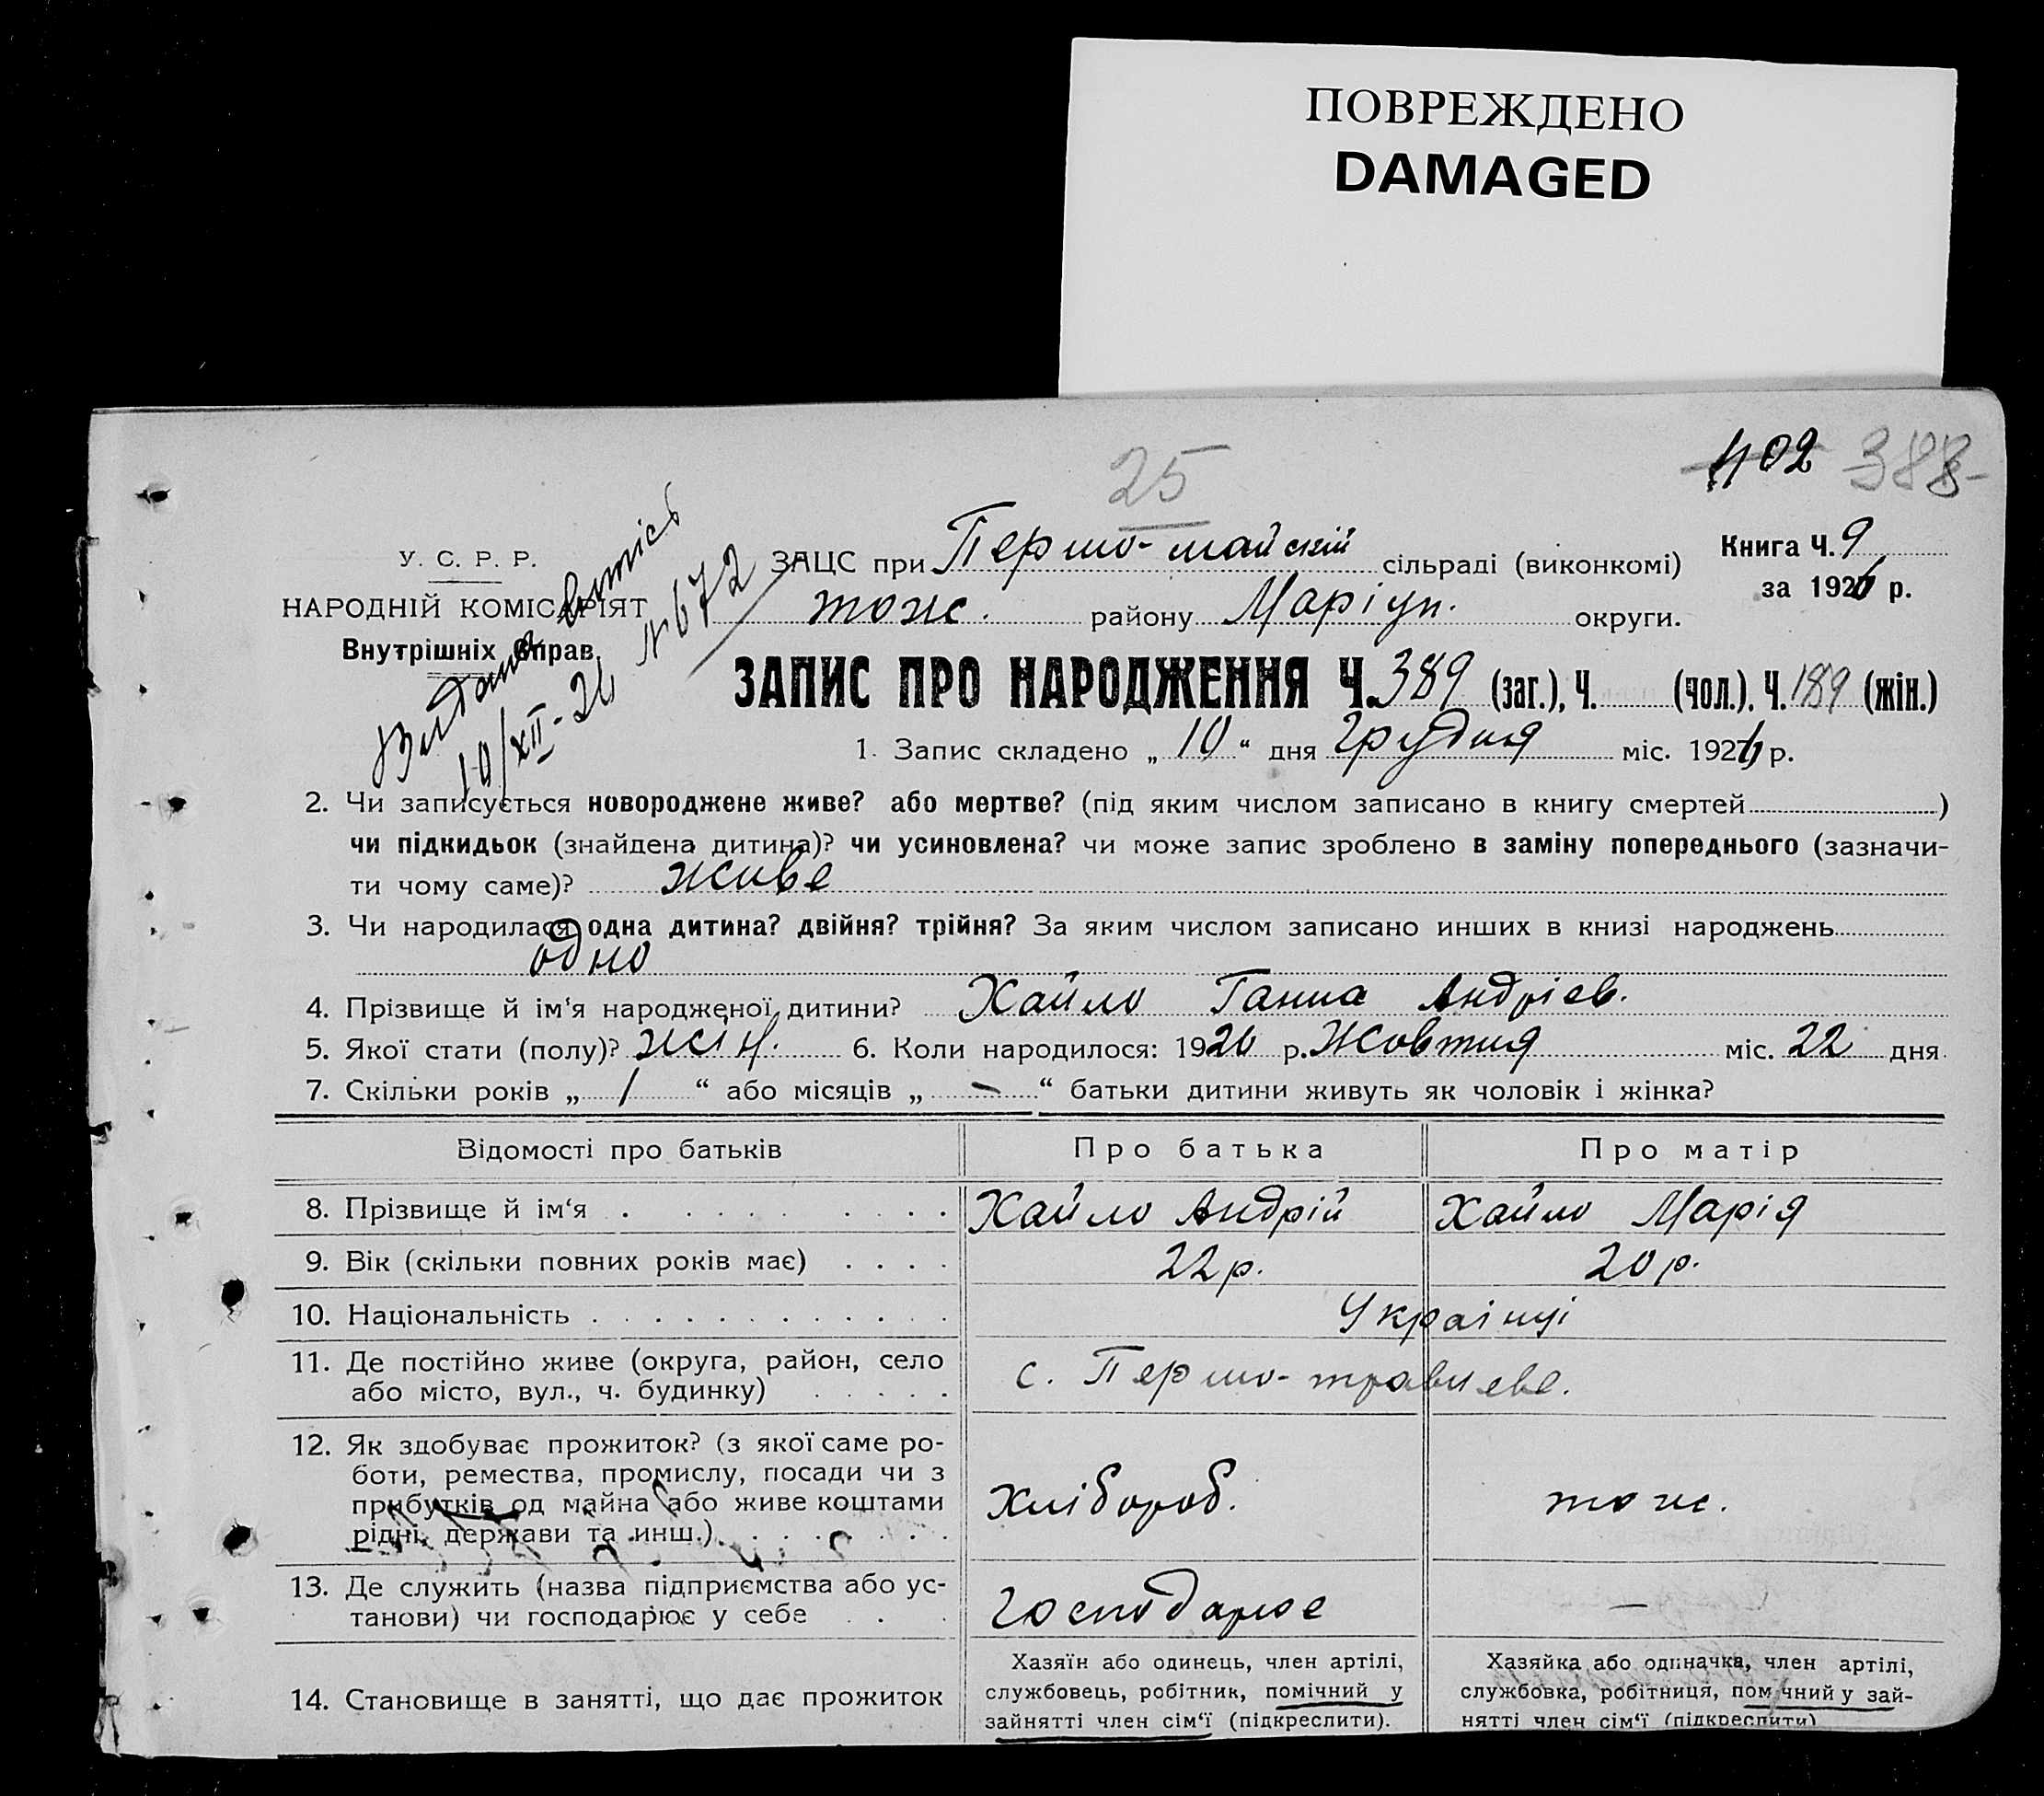 ПОВРЕЖДЕНО
DAMAGED
402 388
25
У. С. Р. Р.
НАРОДНІЙ КОМІСАРІЯТ
Внутрішніх справ.
Видана витпісь
10/XII-26 №672
ЗАЦС при Першо-майскій сільраді (виконкомі)
тож. району Маріуп. округи.
Книга Ч. 9
за 1926 р.
ЗАПИС ПРО НАРОДЖЕННЯ Ч. 389 (заг.), Ч. (чол.). Ч. 189 (жін.)
1. Запис складено „ 10 “ дня Грудня міс. 1926 р.
2. Чи записується новороджене живе? або мертве? (під яким числом записано в книгу смертей )
чи підкидьок (знайдена дитина)? чи усиновлена? чи може запис зроблено в заміну попереднього (зазначи-
ти чому саме)? живе
3. Чи народилася одна дитина? двійня? трійня? За яким числом записано инших в книзі народжень
одно
4. Прізвище й ім‘я народженої дитини? Хайло Ганна Андріев.
5. Якої стати (полу)? жін. 6. Коли народилося: 1926 р. Жовтня міс. 22 дня
7. Скільки років „ 1 “ або місяців „ – “ батьки дитини живуть як чоловік і жінка?
Відомості про батьків Про батька Про матір
8. Прізвище й ім‘я . . . . . . . . Хайло Андрій Хайло Марія
9. Вік (скільки повних років має) . . . . 22 р. 20 р.
10. Національність . . . . . . . . . . . . Українці
11. Де постійно живе (округа, район, село
або місто, вул., ч. будинку) . . . . . с. Першо-травневе.
12. Як здобуває прожиток? (з якої саме ро-
боти, ремества, промислу, посади чи з
прибутків од майна або живе коштами
рідні, держави та инш.) . . . . . . . Хлібороб. тож.
13. Де служить (назва підприємства або ус-
танови) чи господарює у себе . . . Господарює —
14. Становище в занятті, що дає прожиток
Хазяїн або одинець, член артілі,
службовець, робітник, помічний у
зайнятті член сім‘ї (підкреслити).
Хазяйка або одиначка, член артілі,
службовка, робітниця, помічний у зай-
нятті член сім‘ї (підкреслити)